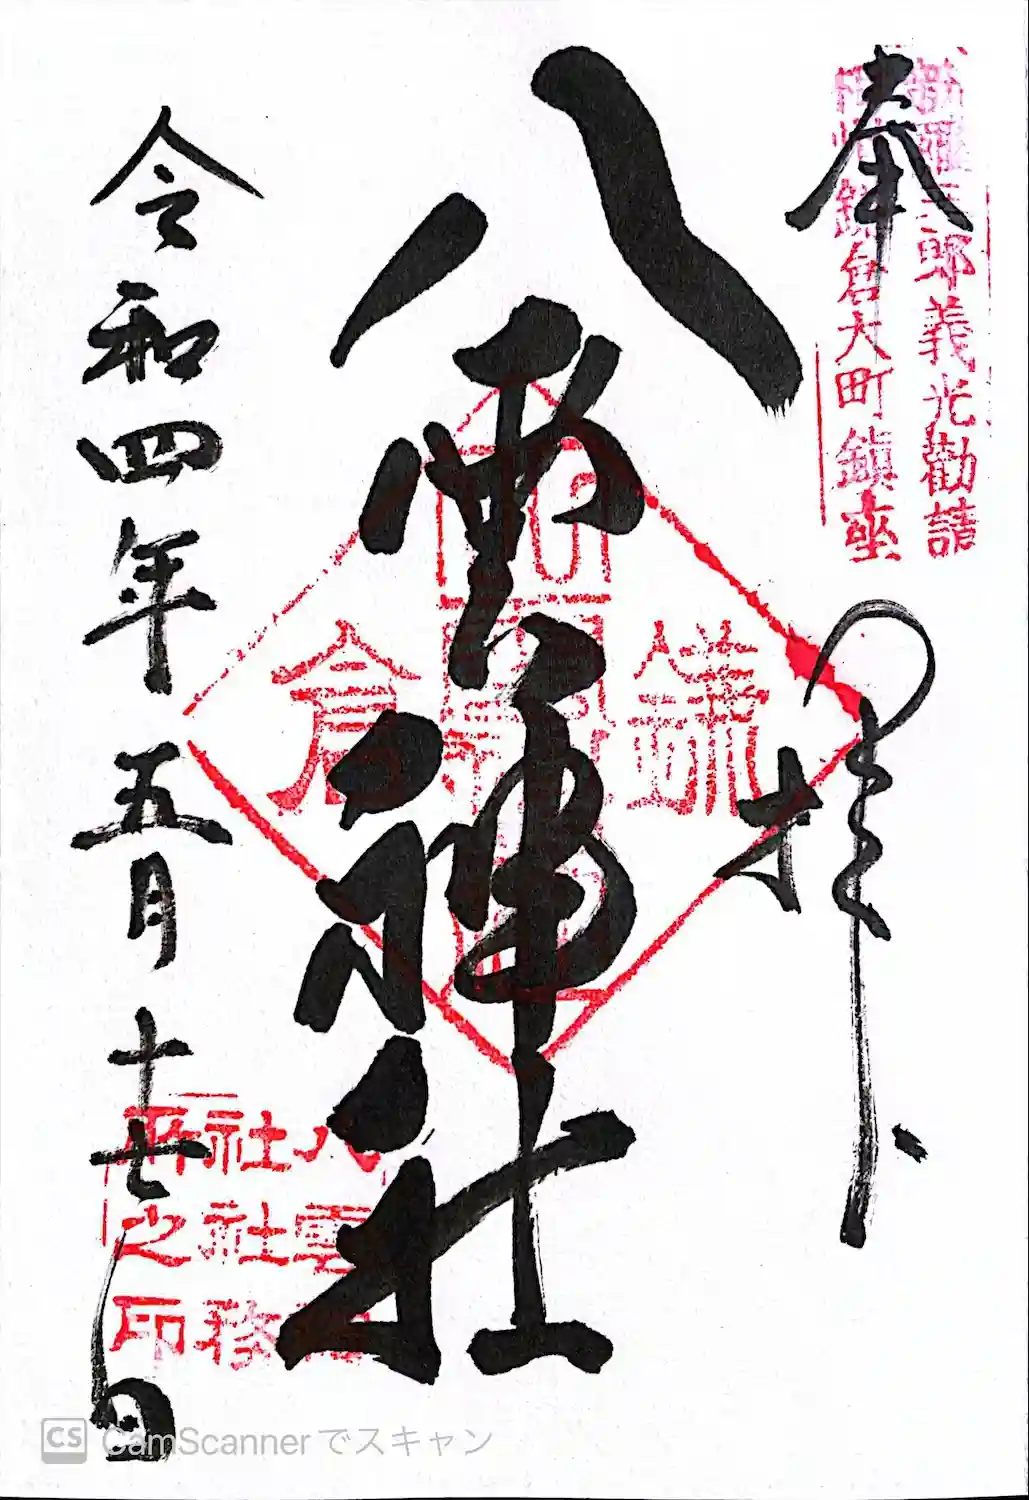 奉拝
新羅三郎義光勧請
相州鎌倉大町鎮座
八雲神社
鎌倉
八雲神
社社務
所之印
令和四年五月十七日
CS CamScannerでスキャン